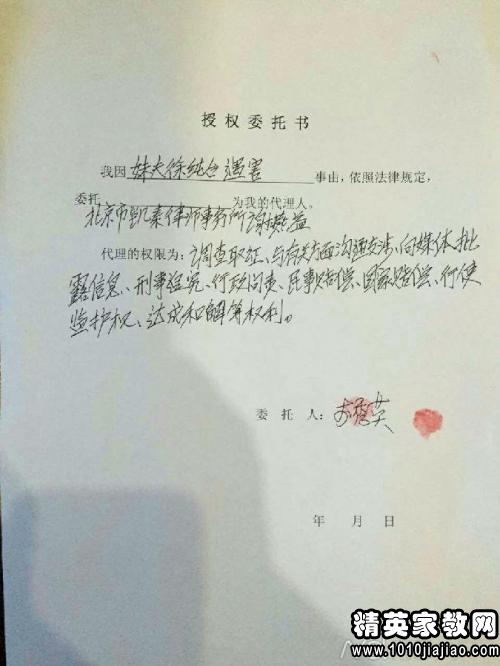 授权委托书
我因 妹夫徐纯合遇害 事由，依照法律规定，
委托 北京市凯泰律师事务所谢燕益 为我的代理人。
代理的权限为：调查取证、与有关方面沟通交涉、向媒体批
露信息、刑事追究、行政问责、民事赔偿、国家赔偿、行使
监护权、达成和解等权利。
委托人：李秀英
年 月 日
精英家教网
www.1010jiajiao.com